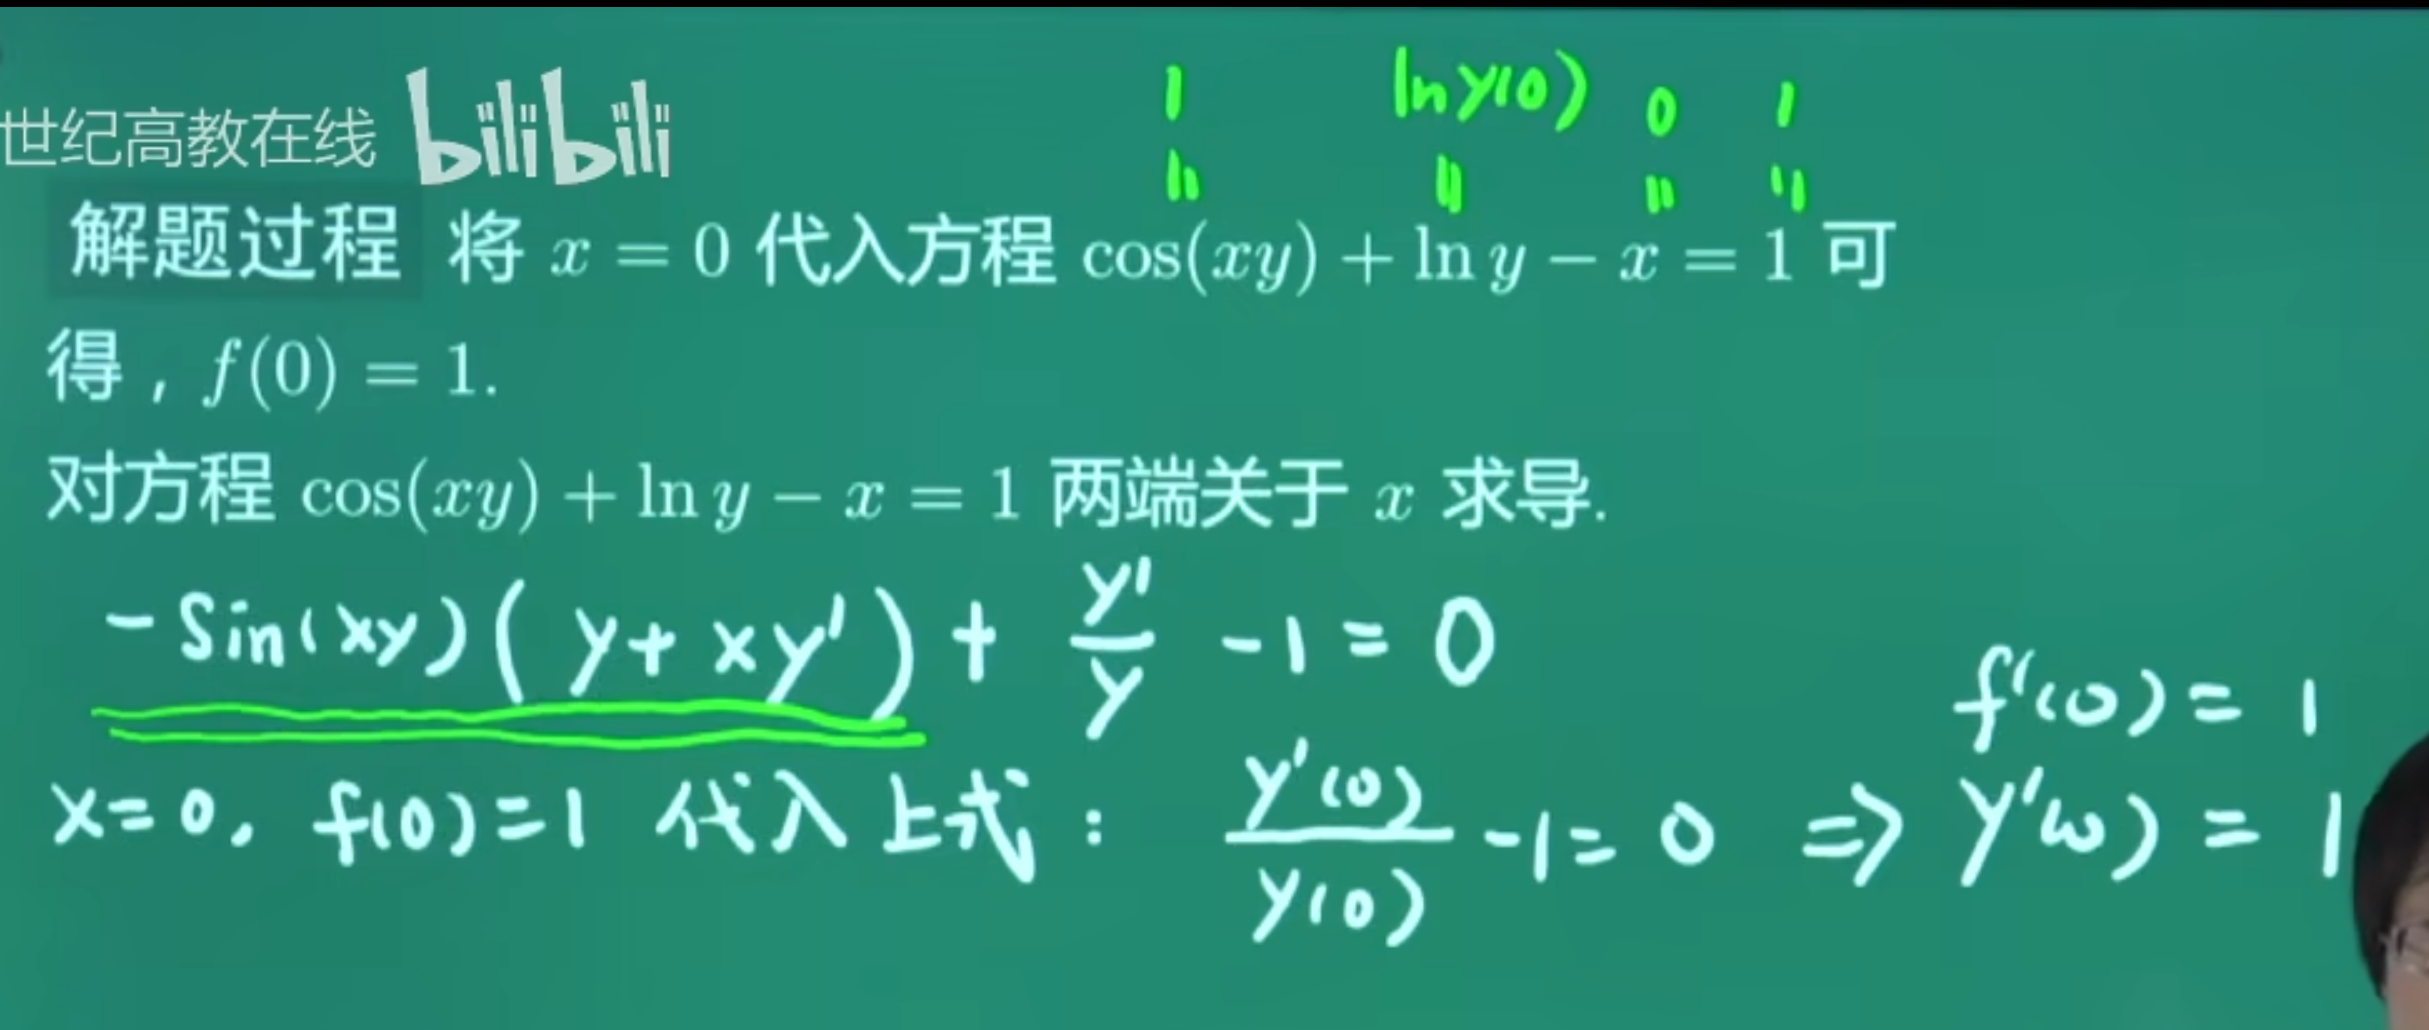 1 ln y(0) 0 1
世纪高教在线 bilibili
" " " "
解题过程 将 x = 0 代入方程 cos(xy) + ln y − x = 1 可
得，f(0) = 1.
对方程 cos(xy) + ln y − x = 1 两端关于 x 求导.
-Sin(xy)(y+xy′)+ y′/y -1=0
f′(0)=1
x=0, f(0)=1 代入上式: y′(0)/y(0) -1=0 ⇒ y′(0)=1